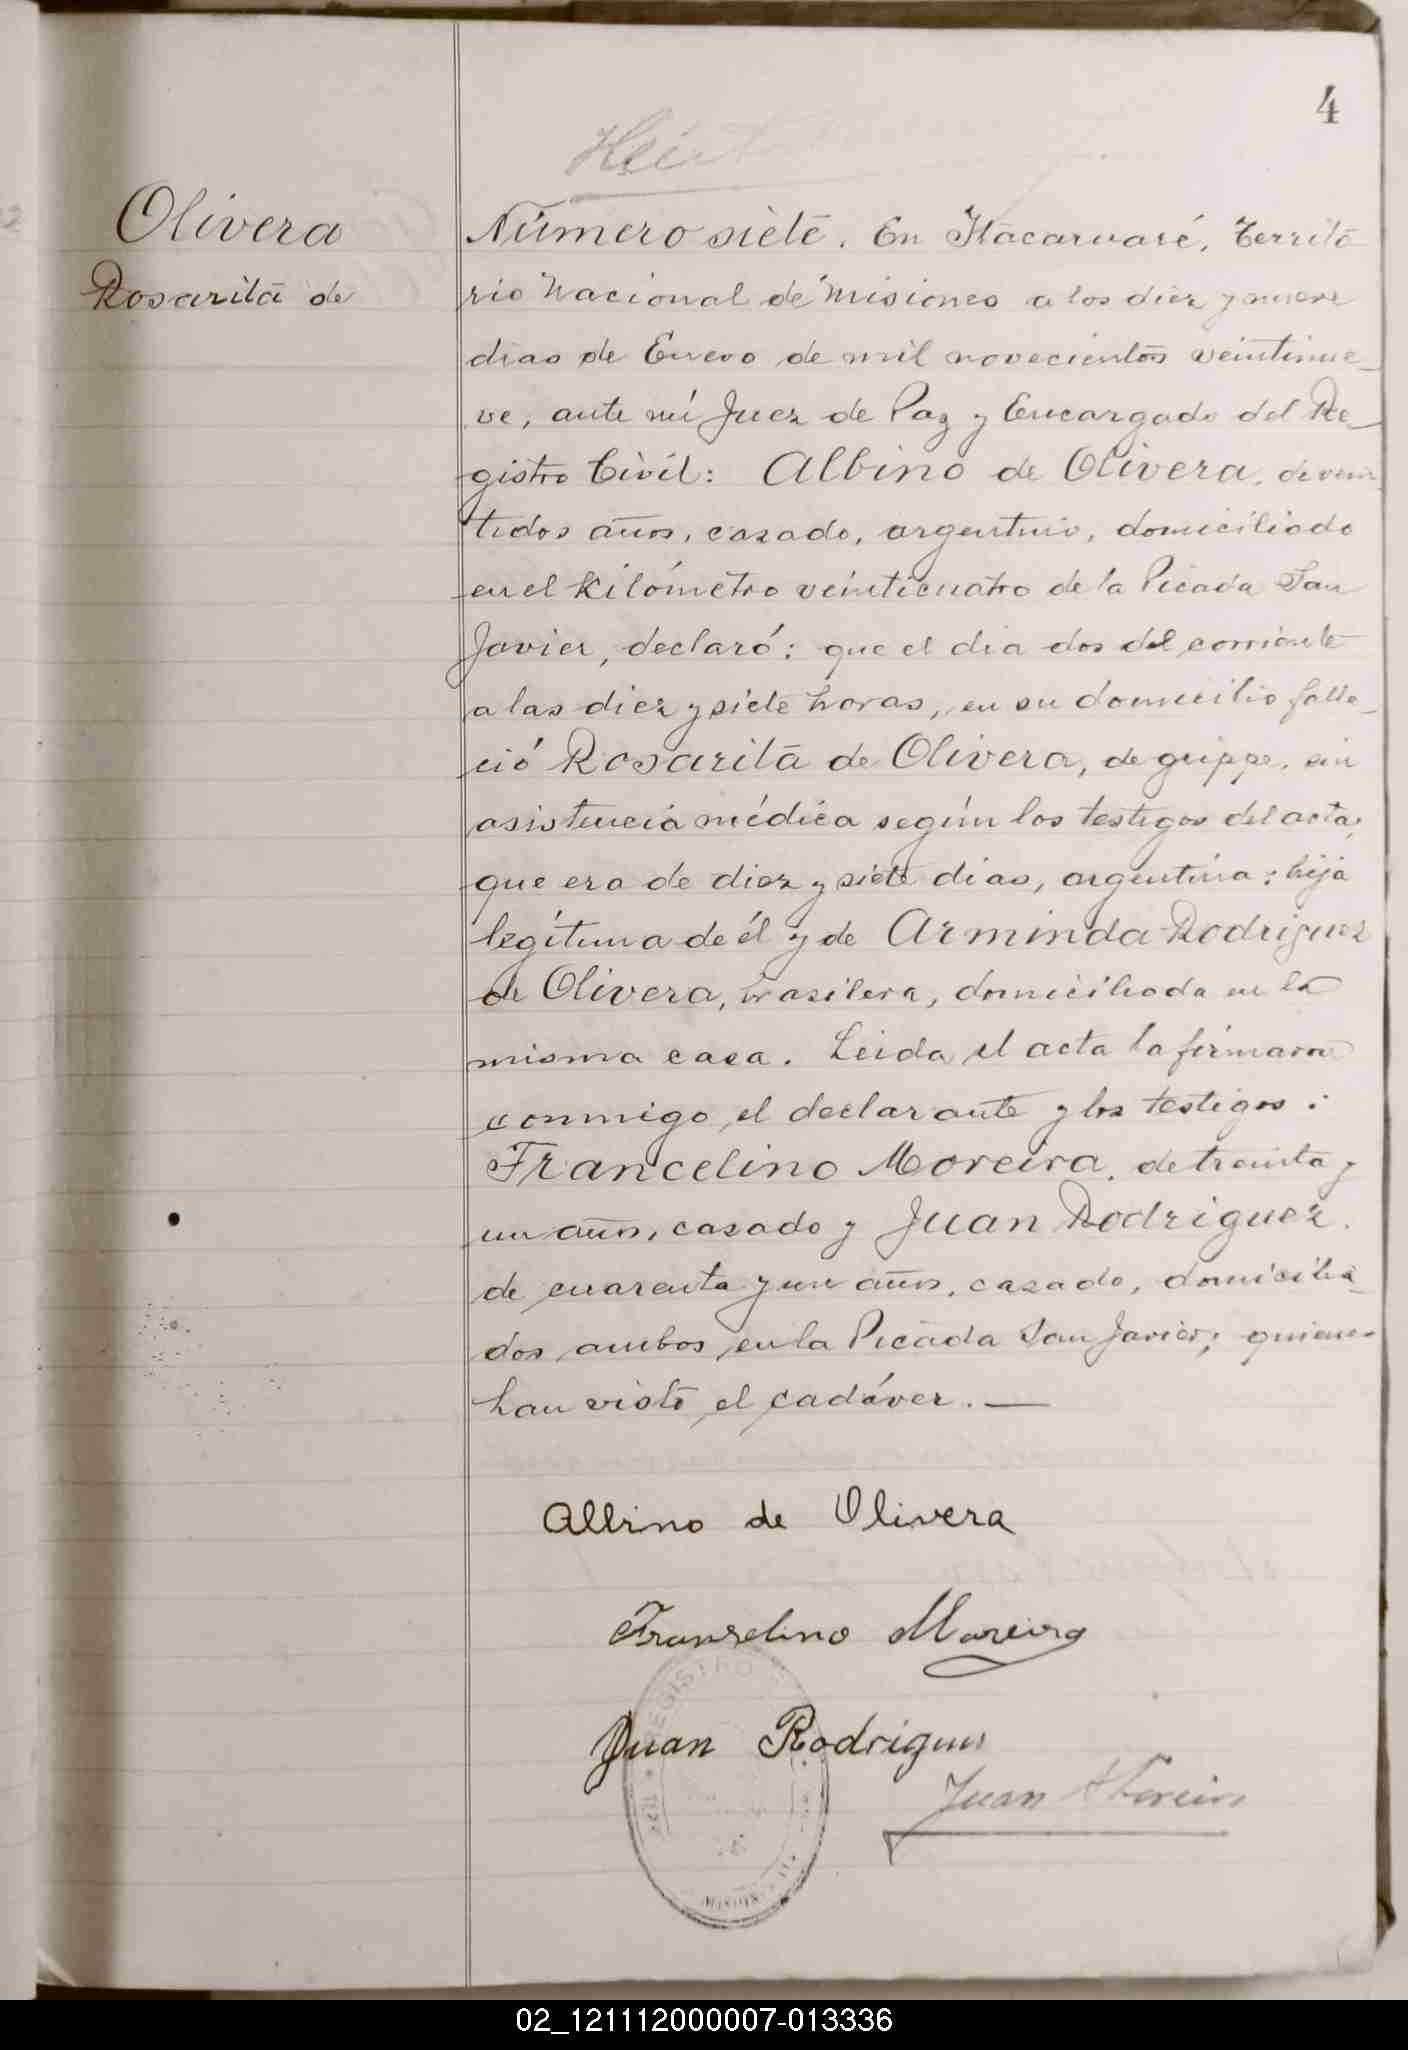 4
Olivera
Rosarita de
Número siete. En Itacaruaré, Territo
rio Nacional de Misiones a los diez y nueve
dias de Enero de mil novecientos veintinue_
ve, ante mí Juez de Paz y Encargado del Re_
gistro Civil: Albino de Olivera, de vein
tidos años, casado, argentino, domiciliado
en el Kilómetro veinticuatro de la Picada San
Javier, declaró: que el dia dos del corriente
a las diez y siete horas, en su domicilio falle_
ció Rosarita de Olivera, de grippe, sin
asistencia médica según los testigos del acta,
que era de diez y siete dias, argentina; hija
legítima de él y de Arminda Rodriguez
de Olivera, brasilera, domiciliada en la
misma casa. Leida el acta la firmaron
conmigo el declarante y los testigos:
Francelino Moreira, de treinta y
un años, casado y Juan Rodriguez.
de cuarenta y un años, casado, domicilia_
dos ambos en la Picada San Javier; quienes
han visto el cadáver. —
Albino de Olivera
Franselino Moreira
REGISTRO
Juan Rodrigues
Juan
02_121112000007-013336